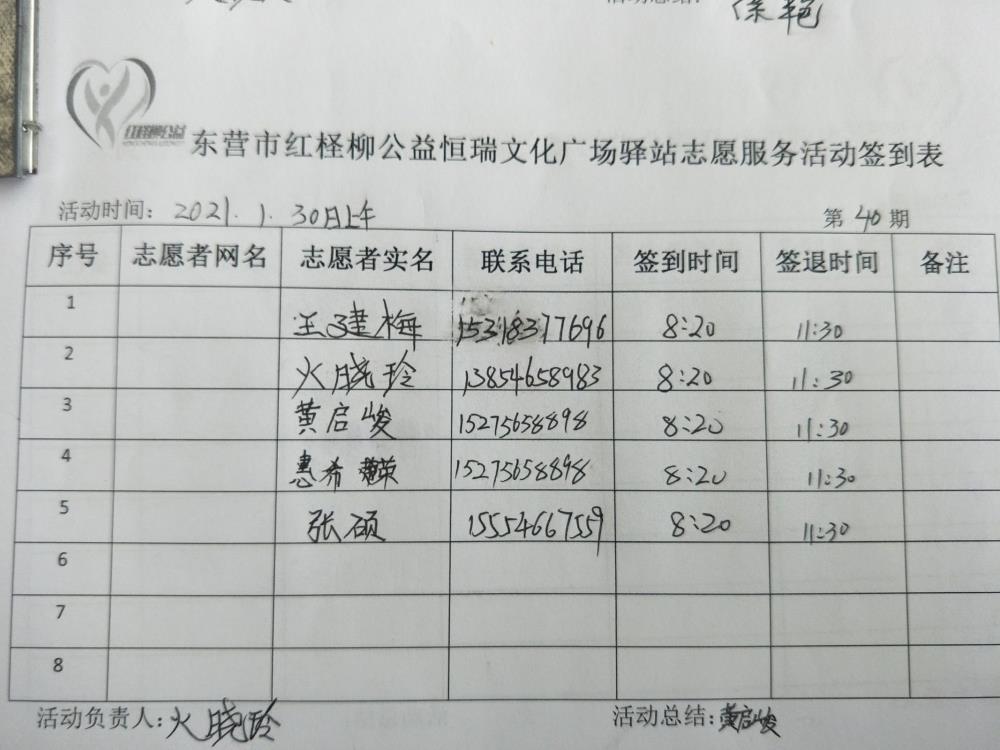 活动总结:
徐艳
红柽柳公益
东营市红柽柳公益恒瑞文化广场驿站志愿服务活动签到表
活动时间: 2021.1.30日上午
第40期
序号 志愿者网名 志愿者实名 联系电话 签到时间 签退时间 备注
1 王建梅 15318377696 8:20 11:30
2 火晓玲 13854658983 8:20 11:30
3 黄启峻 15275658898 8:20 11:30
4 惠希 15275658898 8:20 11:30
5 张硕 15554667559 8:20 11:30
6
7
8
活动负责人:火晓玲 活动总结:黄启峻